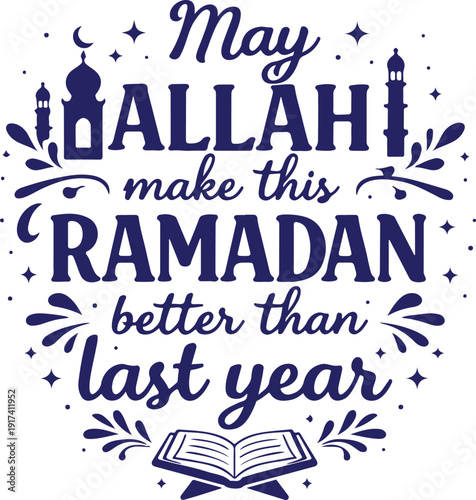 May
ALLAH
make this
RAMADAN
better than
last year
Adobe Stock | #1917411952